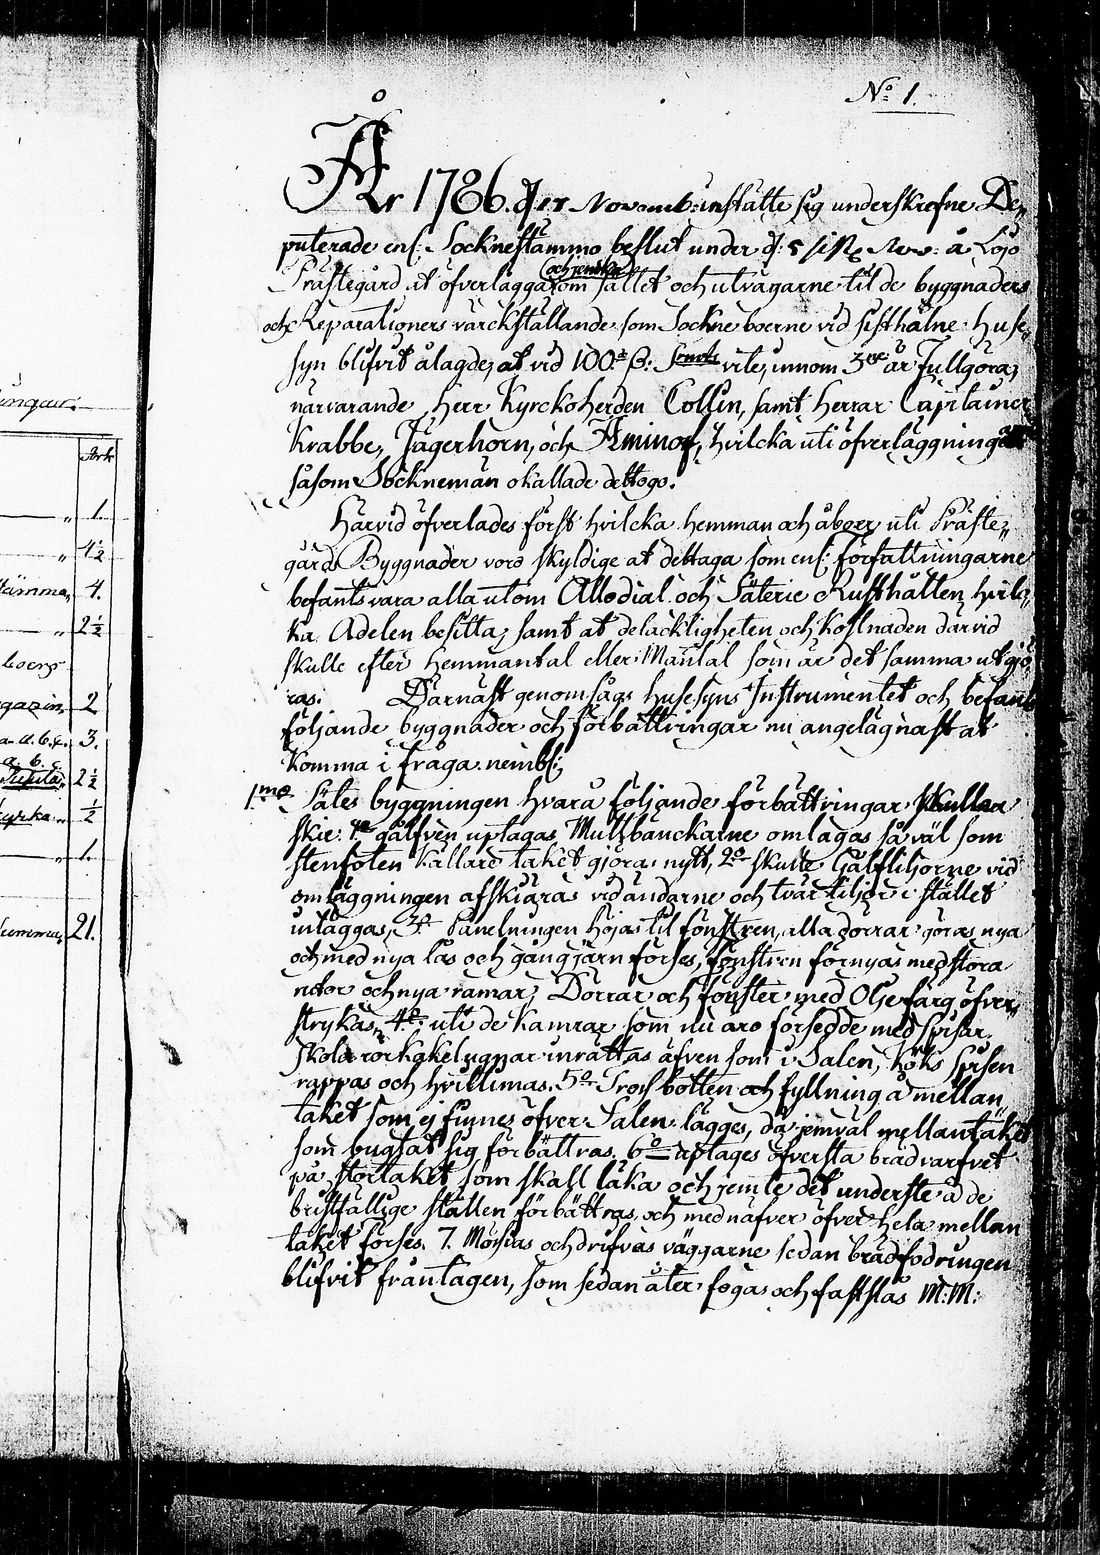 No 1.
År 1786. d. 17. Novemb: instälte sig underskrefne De„
puterade enl: Sockne stämmo beslut under d: 5 sistl. Nov: å Lojo
Prästegård, at öfverlägga om sättet och utvägarne til de byggnaders
och Reparationers värckställande som Sockne boerne vid sisthålne huse„
syn blifvit ålagde, at vid 100. vite, innom 3ne år fullgöra;
närvarande Herr Kyrckoherden Collin, samt Herrar Capitainer
Krabbe, Jägerhorn, och Aminof, hvilcka uti öfverläggningen
såsom Sockneman okallade deltogo.
Härvid öfverlades först hvilcka hemman och åboer uti Präste„
gårds Byggnader voro skyldige at deltaga som enl: författningarne
befants vara alla utom Allodial och Säterie Rusthållen, hvilc„
ka Adelen besitta; samt at delacktigheten och kostnaden därvid
skulle efter Hemmantal eller Mantal som är det samma utgjö
ras. Därnäst genomsågs husesyns Instrumentet och befants
följande byggnader och förbättringar nu angelägnast at
komma i fråga nembl:
1mo Sätes byggningen hvara följande förbättringar skulle
skie: 1o gålfven uptagas Mullbänckarne omlagas så väl som
stenfoten källare taket göras nytt, 2o skulle Gålftiljorne vid
omläggningen afskiäras vid ändarne och tvär tiljor i stället
inläggas, 3o Panelningen höjas til fönstren, alla dörrar göras nya
och med nya lås och gångjärn förses, fönstren förnyas med stora
rutor och nya ramar; Dörrar och fönster med Olje färg öfver„
strykas, 4o uti de Kamrar som nu äro försedde med spisar,
skola rörkakelugnar inrättas äfven som i Salen, Köks spisen
rappas och hvitlimas. 5o Tross botten och fyllning å mellan„
taket som ej finnes öfver Salen lägges, då jemväl mellantaket
som bugtat sig förbättras. 6o uptages öfversta brädvarfvet
på stortaket som skall läka och jemte det understa å de
bristfällige ställen förbättras, och med näfver öfver hela mellan
taket förses. 7. Måssas och drifvas väggarne sedan brädfodringen
blifvit fråntagen, som sedan åter fogas och fastslås M:M:
1.
4½
4.
2½
2
3.
2½
½
1.
21.